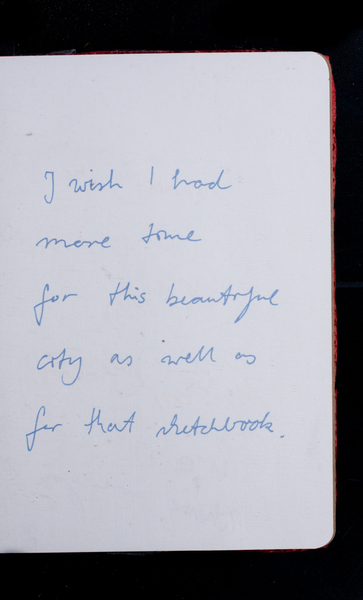 I wish I had
more time
for this beautiful
city as well as
for that sketchbook.